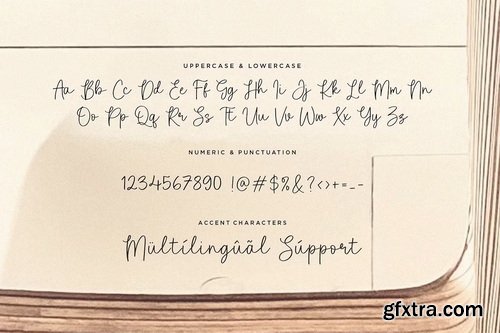 UPPERCASE & LOWERCASE
Aa Bb Cc Dd Ee Ff Gg Hh Ii Jj Kk Ll Mm Nn
Oo Pp Qq Rr Ss Tt Uu Vv Ww Xx Yy Zz
NUMERIC & PUNCTUATION
1234567890 !@#$%&?<>+=_-
ACCENT CHARACTERS
Mültílingûãl Súpport
gfxtra.com